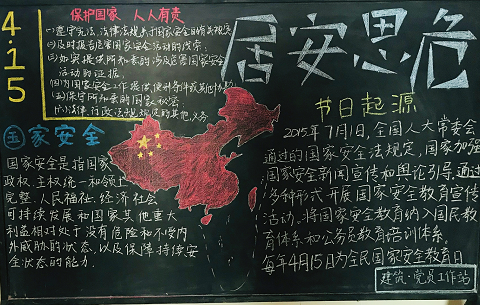 4.15
保护国家 人人有责
(一)遵守宪法、法律法规关于国家安全的有关规定
(二)及时报告危害国家安全活动的线索;
(三)如实提供所知悉的涉及危害国家安全
活动的证据;
(四)为国家安全工作提供便利条件或其他协助
(五)保守所知悉的国家秘密;
(六)法律、行政法规规定的其他义务
居安思危
国家安全
国家安全是指国家
政权、主权、统一和领土
完整、人民福祉、经济社会
可持续发展和国家其他重大
利益相对处于没有危险和不受内
外威胁的状态,以及保障持续安
全状态的能力.
节日起源
2015年7月1日,全国人大常委会
通过的国家安全法规定,国家加强
国家安全新闻宣传和舆论引导,通过
多种形式开展国家安全教育宣传
活动,将国家安全教育纳入国民教
育体系和公务员教育培训体系.
每年4月15日为全民国家安全教育日
建筑·党员工作站